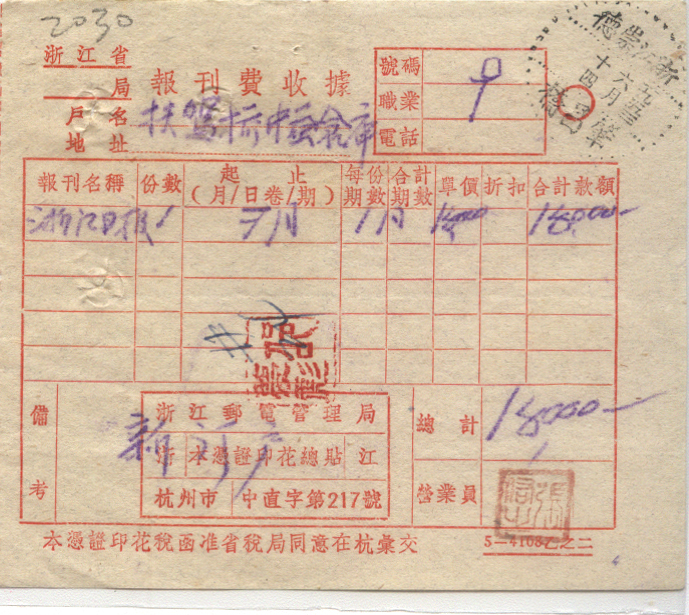 2030
浙江省
局
報刊費收據
戶名
地址
號碼
職業
電話
報刊名稱 份數 起止(月/日卷/期) 每份期數 合計數 單價 折扣 合計款額
浙江日报 1 1月 18000-
備考
浙江郵電管理局
浙 本憑證印花總貼 江
杭州市 中直字第217號
新訂戶
總計 18000-
營業員
本憑證印花稅函准省稅局同意在杭彙交
5-4108乙之二